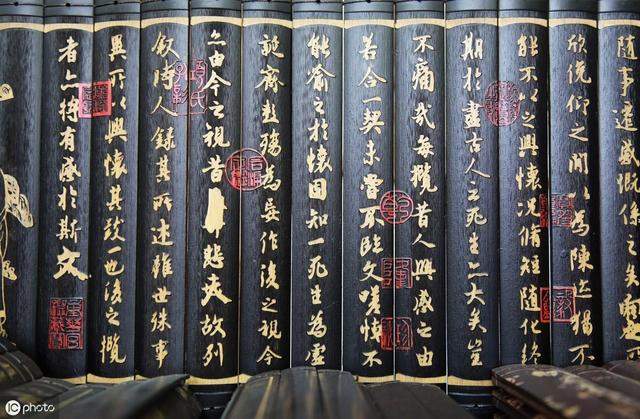 隨事遷感慨係之矣向之所
欣俛仰之間以為陳迹猶不
能不以之興懷況脩短隨化終
期於盡古人云死生亦大矣豈
不痛哉每攬昔人興感之由
若合一契未嘗不臨文嗟悼不
能喻之於懷固知一死生為虛
誕齊彭殤為妄作後之視今
亦由今之視昔悲夫故列
敘時人錄其所述雖世殊事
異所以興懷其致一也後之攬
者亦將有感於斯文
iC photo